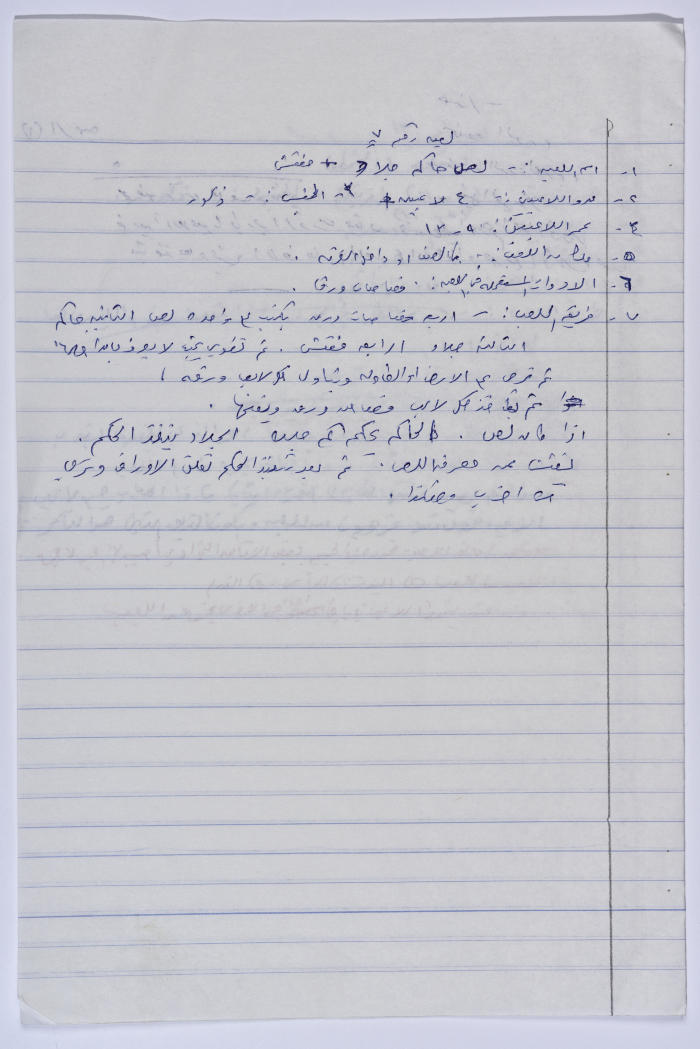 لعبه رقم ٧
١- اسم اللعبه :- لص حاكم جلاد + مفتش
٢- عدد اللاعبين :- ٤ لاعبين + ٣- الجنس :- ذكور
٤- عمر اللاعبين : ٩ - ١٢
٥- مكان اللعب :- في الصف او داخل الغرفه .
٦- الادوات المستعمله في اللعبه : قصاصات ورق .
٧- طريقة اللعب :- اربع قصاصات ورق يكتب على واحده لص الثانيه حاكم
الثالثة جلاد الرابعه مفتش . ثم تطوي بحيث لا يعرف ما بداخلها
ثم ترمى على الارض او الطاوله ويتناول كل لاعب ورقه
ثم يأخذ كل لاعب قصاصه ورق ويفتحها .
اذا كان لص . الحاكم يحكم كم جلده الجلاد ينفذ الحكم .
يفتش عن معرفة اللص . ثم بعد تنفيذ الحكم تغلق الاوراق وترمي
مره اخرى وهكذا .